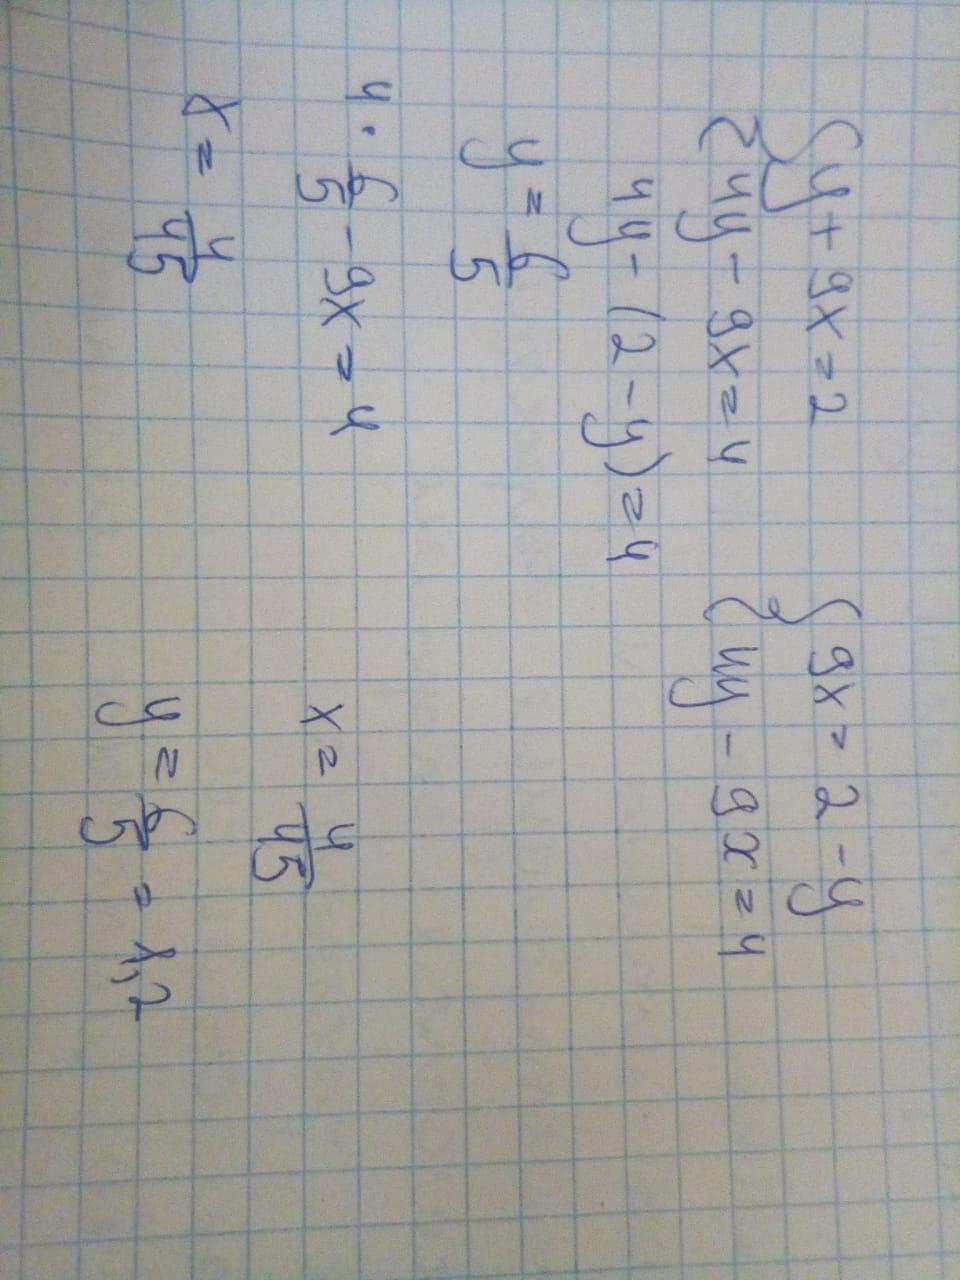 {y + 9x = 2
{4y - 9x = 4
{9x = 2 - y
{4y - 9x = 4
4y - (2 - y) = 4
y = 6/5
4 · 6/5 - 9x = 4
x = 4/45
x = 4/45
y = 6/5 = 1,2